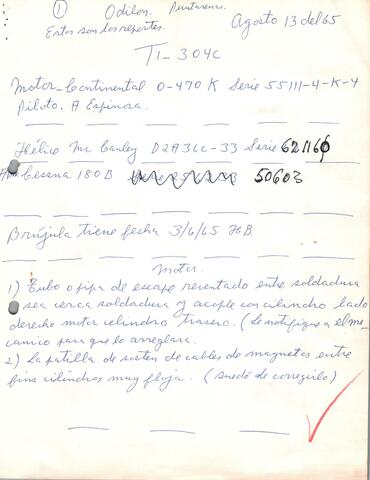 ① Odilon. Puntarenas.
Estos son los reportes. Agosto 13 del 65
TI-304C
Motor-Continental O-470 K Serie 55111-4-K-4
Piloto. A Espinoza.
Hélice Mc Cauley D2A36C-33 Serie 621160
Cessna 180B 50603
Brújula tiene fecha 3/6/65
Motor.
1) Tubo o pipa de escape reventado entre soldadura
o sea cerca soldadura y acople con cilindro lado
derecho motor cilindro trasero. (Le notifique a el me-
canico para que lo arreglara.
2) La patilla de sosten de cables de magnetos entre
fins cilindros muy floja. (quedó de corregirlo)